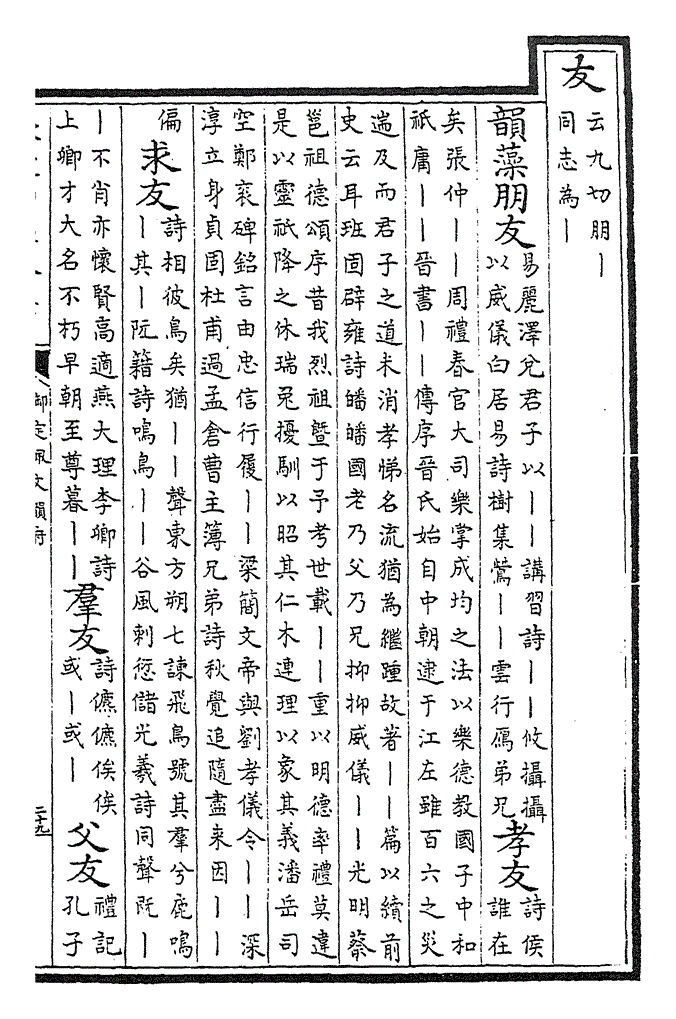 友
云九切朋丨
同志為丨
韻藻朋友
易麗澤兌君子以丨丨講習詩丨丨攸攝攝
以威儀白居易詩樹集鶯丨丨雲行鴈弟兄
孝友
詩侯
誰在
矣張仲丨丨周禮春官大司樂掌成均之法以樂德教國子中和
祇庸丨丨晉書丨丨傳序晉氏始自中朝逮于江左雖百六之災
遄及而君子之道未消孝悌名流猶為繼踵故著丨丨篇以續前
史云耳班固辟雍詩皤皤國老乃父乃兄抑抑威儀丨丨光明蔡
邕祖德頌序昔我烈祖暨于予考世載丨丨重以明德率禮莫違
是以靈祇降之休瑞兔擾馴以昭其仁木連理以象其義潘岳司
空鄭袤碑銘言由忠信行履丨丨梁簡文帝與劉孝儀令丨丨深
淳立身貞固杜甫過孟倉曹主簿兄弟詩秋覺追隨盡來因丨丨
偏
求友
詩相彼鳥矣猶丨丨聲東方朔七諫飛鳥號其羣兮鹿鳴
丨其丨阮籍詩鳴鳥丨丨谷風刺愆儲光羲詩同聲既丨
丨不肖亦懷賢高適燕大理李卿詩
上卿才大名不朽早朝至尊暮丨丨
羣友
詩儦儦俟俟
或丨或丨
父友
禮記
孔子
御定佩文韻府
二十九